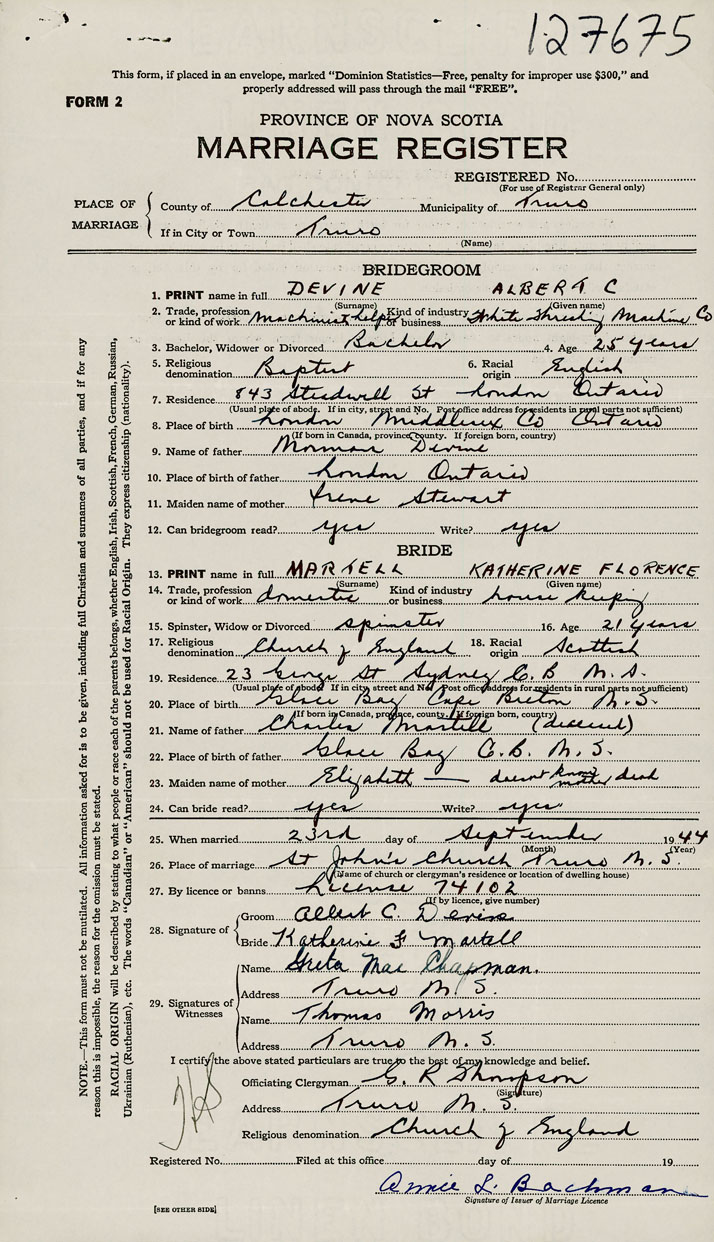 127675
This form, if placed in an envelope, marked "Dominion Statistics—Free, penalty for improper use $300," and
properly addressed will pass through the mail "FREE".
FORM 2
PROVINCE OF NOVA SCOTIA
MARRIAGE REGISTER
REGISTERED No.
(For use of Registrar General only)
PLACE OF MARRIAGE
County of Colchester Municipality of Truro
If in City or Town Truro
(Name)
BRIDEGROOM
1. PRINT name in full DEVINE ALBERT C
(Surname) (Given name)
2. Trade, profession or kind of work Machinist helper Kind of industry or business White Threshing Machine Co
3. Bachelor, Widower or Divorced Bachelor 4. Age 25 years
5. Religious denomination Baptist 6. Racial origin English
7. Residence 843 St London Ontario
(Usual place of abode. If in city, street and No. Post office address for residents in rural parts not sufficient)
8. Place of birth London Middlesex Co Ontario
(If born in Canada, province, county. If foreign born, country)
9. Name of father Norman Devine
10. Place of birth of father London Ontario
11. Maiden name of mother Irene Stewart
12. Can bridegroom read? yes Write? yes
BRIDE
13. PRINT name in full MARTELL KATHERINE FLORENCE
(Surname) (Given name)
14. Trade, profession or kind of work domestic Kind of industry or business house keeping
15. Spinster, Widow or Divorced spinster 16. Age 21 years
17. Religious denomination Church of England 18. Racial origin Scottish
19. Residence 23 George St Sydney C.B N.S.
(Usual place of abode If in city, street and No. Post office address for residents in rural parts not sufficient)
20. Place of birth Glace Bay Cape Breton N.S.
(If born in Canada, province, county. If foreign born, country)
21. Name of father Charles Martell (deceased)
22. Place of birth of father Glace Bay C.B. N.S.
23. Maiden name of mother Elizabeth — doesn't know mother dead
24. Can bride read? yes Write? yes
25. When married 23rd day of September 1944
(Month) (Year)
26. Place of marriage St John's Church Truro N.S.
(Name of church or clergyman's residence or location of dwelling house)
27. By licence or banns License 74102
(If by licence, give number)
28. Signature of
Groom Albert C. Devine
Bride Katherine F Martell
29. Signatures of Witnesses
Name Greta Mae Chapman.
Address Truro N.S.
Name Thomas Morris
Address Truro N.S.
I certify the above stated particulars are true to the best of my knowledge and belief.
Officiating Clergyman G. R Thompson
(Signature)
Address Truro N.S.
Religious denomination Church of England
Registered No. Filed at this office day of 19
Annie L. Bachman
Signature of Issuer of Marriage Licence
[SEE OTHER SIDE]
NOTE.—This form must not be mutilated. All information asked for is to be given, including full Christian and surnames of all parties, and if for any
reason this is impossible, the reason for the omission must be stated.
RACIAL ORIGIN will be described by stating to what people or race each of the parents belongs, whether English, Irish, Scottish, French, German, Russian,
Ukrainian (Ruthenian), etc. The words "Canadian" or "American" should not be used for Racial Origin. They express citizenship (nationality).